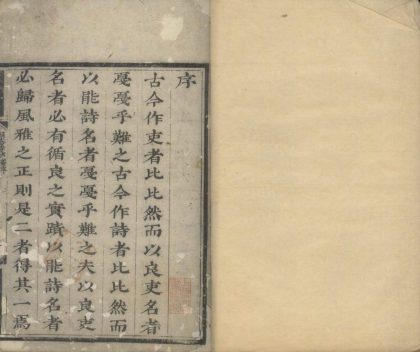 序
古今作吏者比比然而以良吏名者
戞戞乎難之古今作詩者比比然而
以能詩名者戞戞乎難之夫以良吏
名者必有循良之實蹟以能詩名者
必歸風雅之正則是二者得其一焉